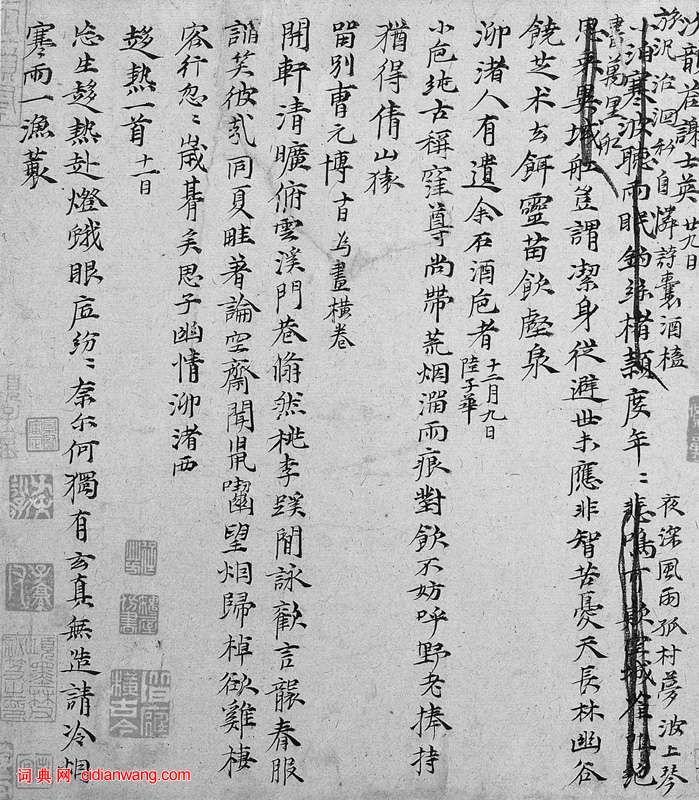 士英 廿九日
旅泛沿洄祗自憐詩囊酒榼
書萬里船
小泊寒波聽雨眠釣絲 度年〃
夜深風雨孤村夢 上琴
異域船豈謂潔身從避世未應非智苦憂天長林幽谷
饒芝术玄餌靈苗飲壑泉
泖渚人有遺余石酒卮者 十二月九日 陸子華
小卮純古稱窪尊尚帶荒烟溜雨痕對飲不妨呼野老捧持
猶得倩山猿
留別曹元博 十日 為畫橫卷
開軒清曠俯雲溪門巷翛然桃李蹊閒詠歡言 春服
諧笑彼哉同夏畦著論空齋聞鼠嚙望烟歸棹欲雞棲
客行忽〃歲朞矣思子幽情泖渚西
趍熱一首 十一日
生趍熱赴燈蛾眼底紛〃奈尔何獨有玄真無造請冷烟
寒雨一漁蓑
词典网 cidianwang.com